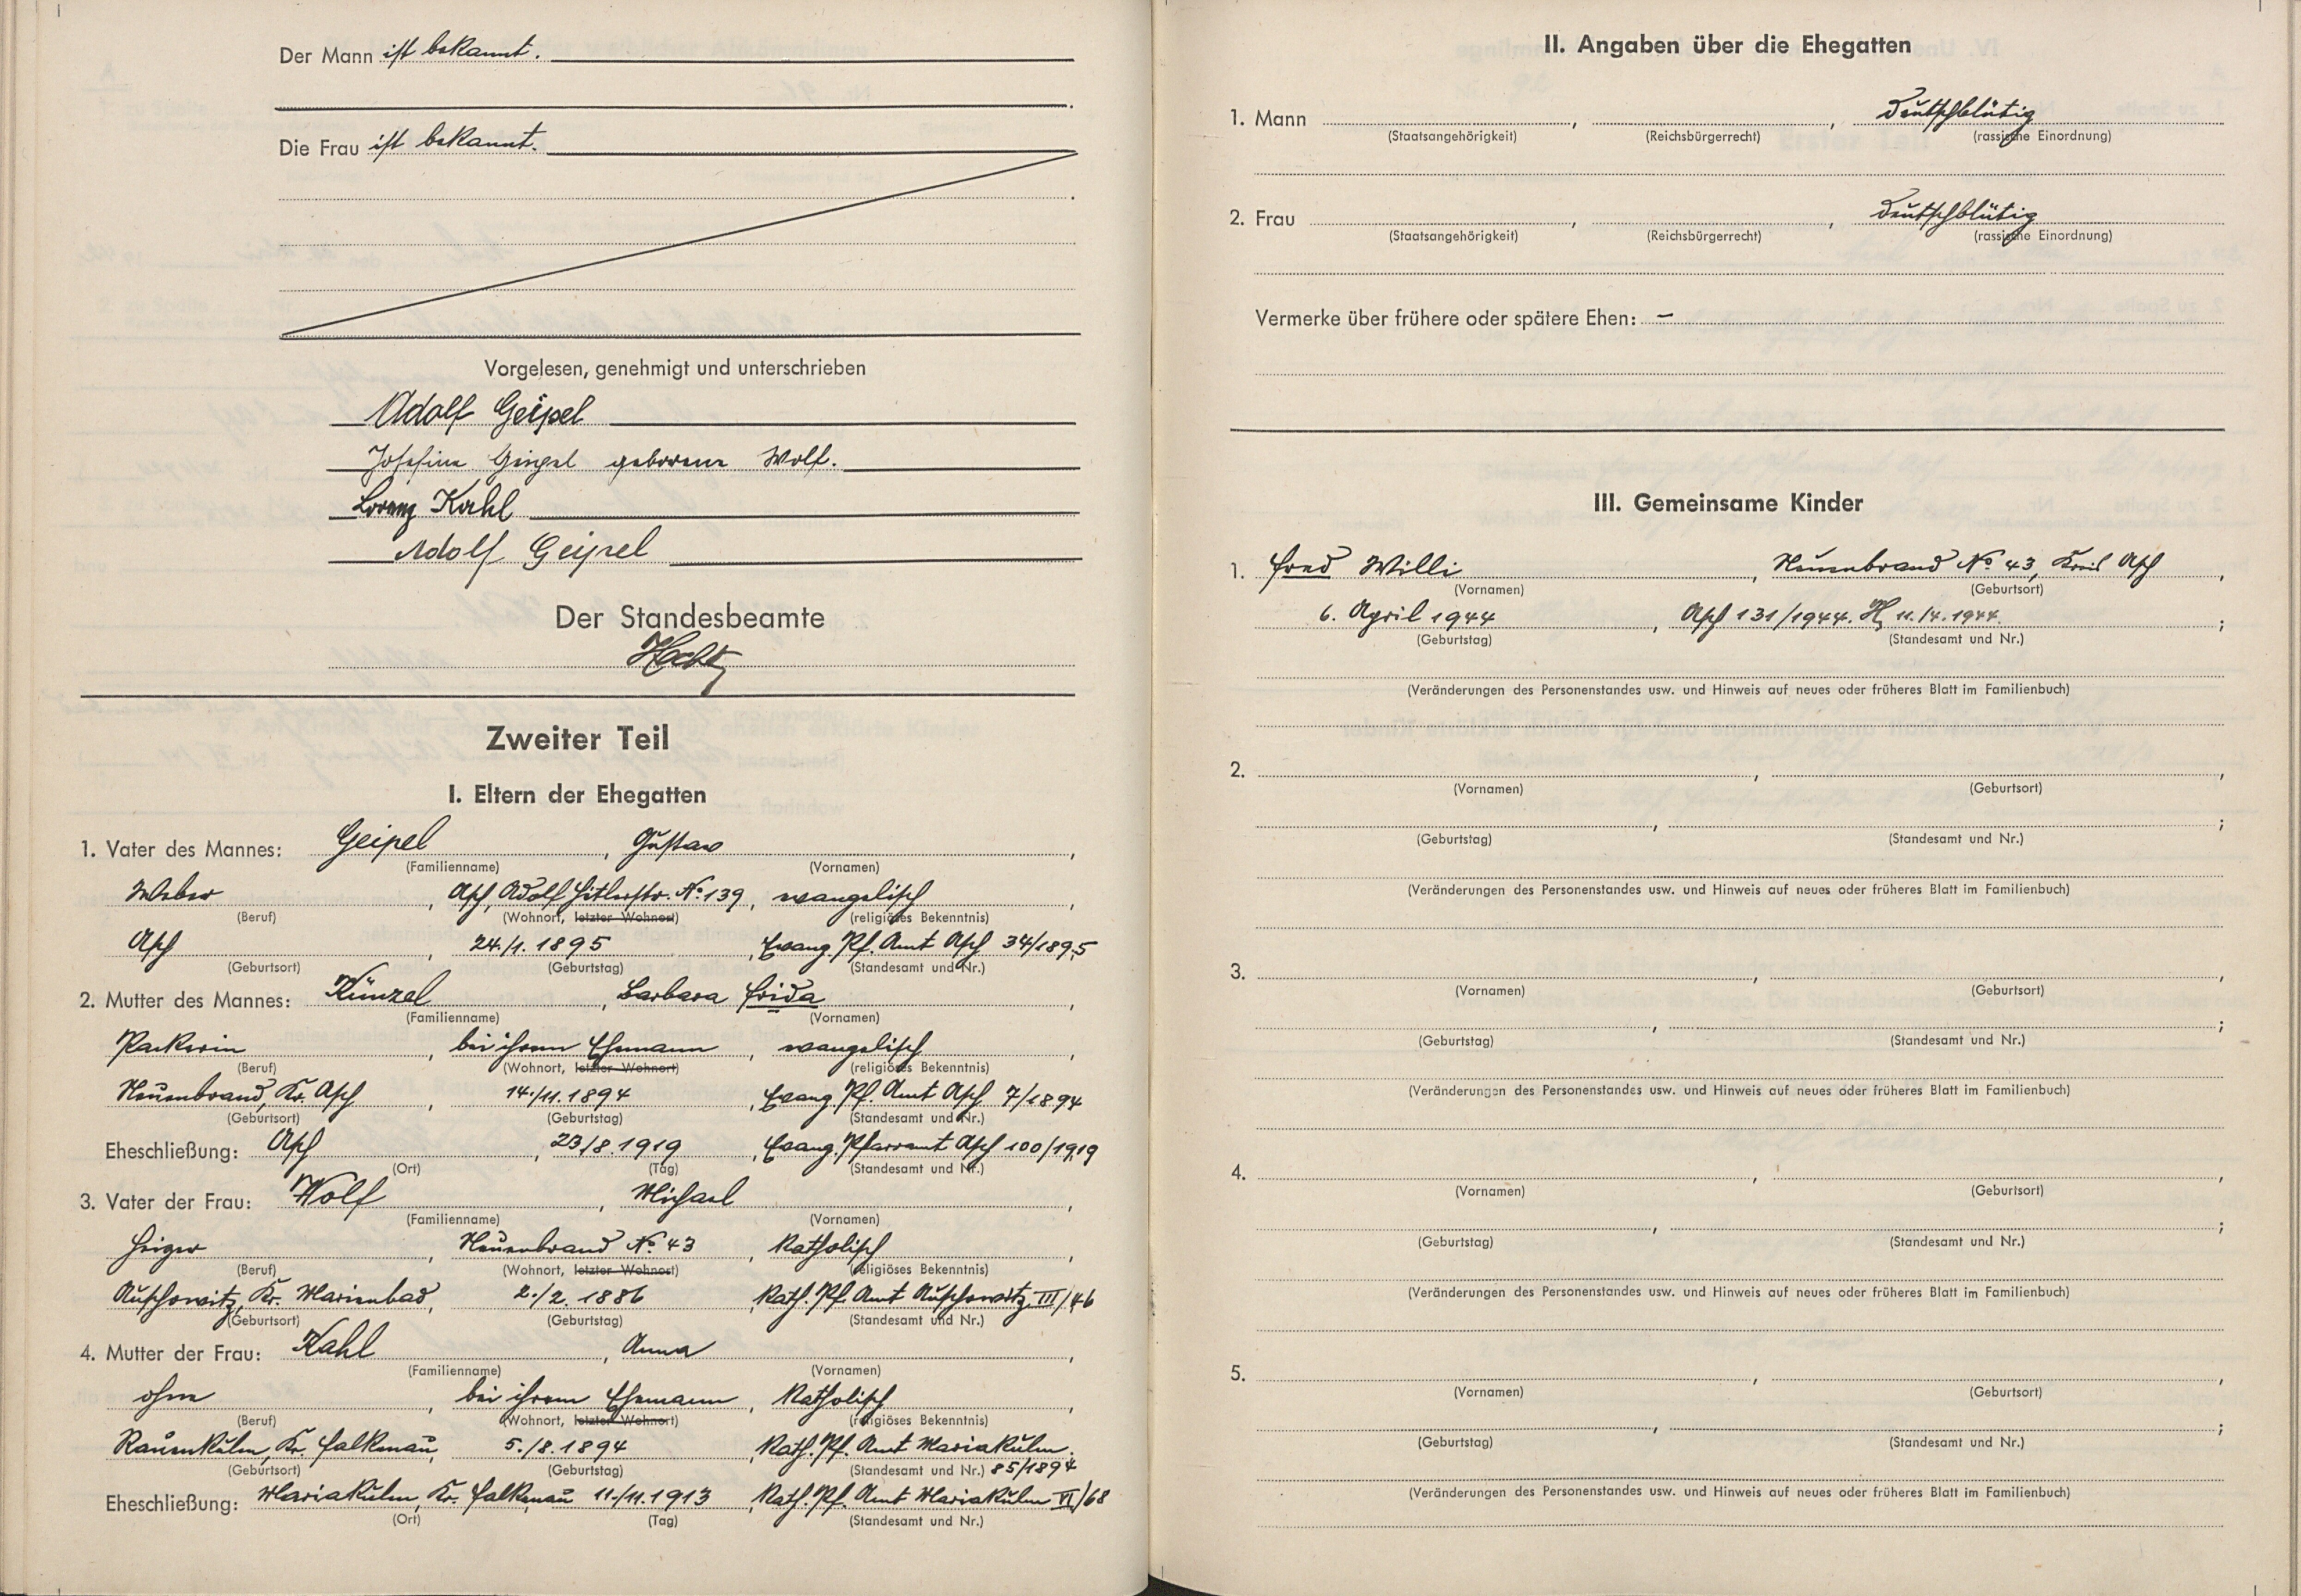 Der Mann ist bekannt.
Die Frau ist bekannt.
Vorgelesen, genehmigt und unterschrieben
Adolf Geipel
Josefine Geipel geborene Wolf.
Lorenz Kahl
Adolf Geipel
Der Standesbeamte
Zweiter Teil
I. Eltern der Ehegatten
1. Vater des Mannes: Geipel, Gustav,
(Familienname) (Vornamen)
Weber, Asch, Adolf Hitlerstr. No. 139, evangelisch,
(Beruf) (Wohnort, letzter Wohnort) (religiöses Bekenntnis)
Asch, 24./1. 1895, Evang. Pf. Amt Asch 34/1895
(Geburtsort) (Geburtstag) (Standesamt und Nr.)
2. Mutter des Mannes: Künzel, Barbara Frida,
(Familienname) (Vornamen)
Packerin, bei ihrem Ehemann, evangelisch,
(Beruf) (Wohnort, letzter Wohnort) (religiöses Bekenntnis)
Neuenbrand, Kr. Asch, 14./11. 1894, Evang. Pf. Amt Asch 7/1894
(Geburtsort) (Geburtstag) (Standesamt und Nr.)
Eheschließung: Asch, 23/8. 1919, Evang. Pfarramt Asch 100/1919
(Ort) (Tag) (Standesamt und Nr.)
3. Vater der Frau: Wolf, Michael,
(Familienname) (Vornamen)
Heizer, Neuenbrand No. 43, katholisch,
(Beruf) (Wohnort, letzter Wohnort) (religiöses Bekenntnis)
Auschowitz, Kr. Marienbad, 2./2. 1886, Kath. Pf. Amt Auschowitz III/46
(Geburtsort) (Geburtstag) (Standesamt und Nr.)
4. Mutter der Frau: Kahl, Anna,
(Familienname) (Vornamen)
ohne, bei ihrem Ehemann, katholisch,
(Beruf) (Wohnort, letzter Wohnort) (religiöses Bekenntnis)
Rauenkulm, Kr. Falkenau, 5./8. 1894, Kath. Pf. Amt Mariakulm.
(Geburtsort) (Geburtstag) (Standesamt und Nr.) 85/1894
Eheschließung: Mariakulm, Kr. Falkenau 11./11. 1913, Kath. Pf. Amt Mariakulm VI/68
(Ort) (Tag) (Standesamt und Nr.)
II. Angaben über die Ehegatten
1. Mann , , Deutschblütig
(Staatsangehörigkeit) (Reichsbürgerrecht) (rassische Einordnung)
2. Frau , , Deutschblütig
(Staatsangehörigkeit) (Reichsbürgerrecht) (rassische Einordnung)
Vermerke über frühere oder spätere Ehen: –
III. Gemeinsame Kinder
1. Fred Willi, Neuenbrand No. 43, Kreis Asch,
(Vornamen) (Geburtsort)
6. April 1944, Asch 131/1944. 11./4. 1944. ;
(Geburtstag) (Standesamt und Nr.)
(Veränderungen des Personenstandes usw. und Hinweis auf neues oder früheres Blatt im Familienbuch)
2. , ,
(Vornamen) (Geburtsort)
, ;
(Geburtstag) (Standesamt und Nr.)
(Veränderungen des Personenstandes usw. und Hinweis auf neues oder früheres Blatt im Familienbuch)
3. , ,
(Vornamen) (Geburtsort)
, ;
(Geburtstag) (Standesamt und Nr.)
(Veränderungen des Personenstandes usw. und Hinweis auf neues oder früheres Blatt im Familienbuch)
4. , ,
(Vornamen) (Geburtsort)
, ;
(Geburtstag) (Standesamt und Nr.)
(Veränderungen des Personenstandes usw. und Hinweis auf neues oder früheres Blatt im Familienbuch)
5. , ,
(Vornamen) (Geburtsort)
, ;
(Geburtstag) (Standesamt und Nr.)
(Veränderungen des Personenstandes usw. und Hinweis auf neues oder früheres Blatt im Familienbuch)